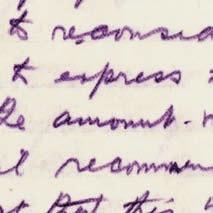 to reconsid
to express
the amount
l recommen
st that this